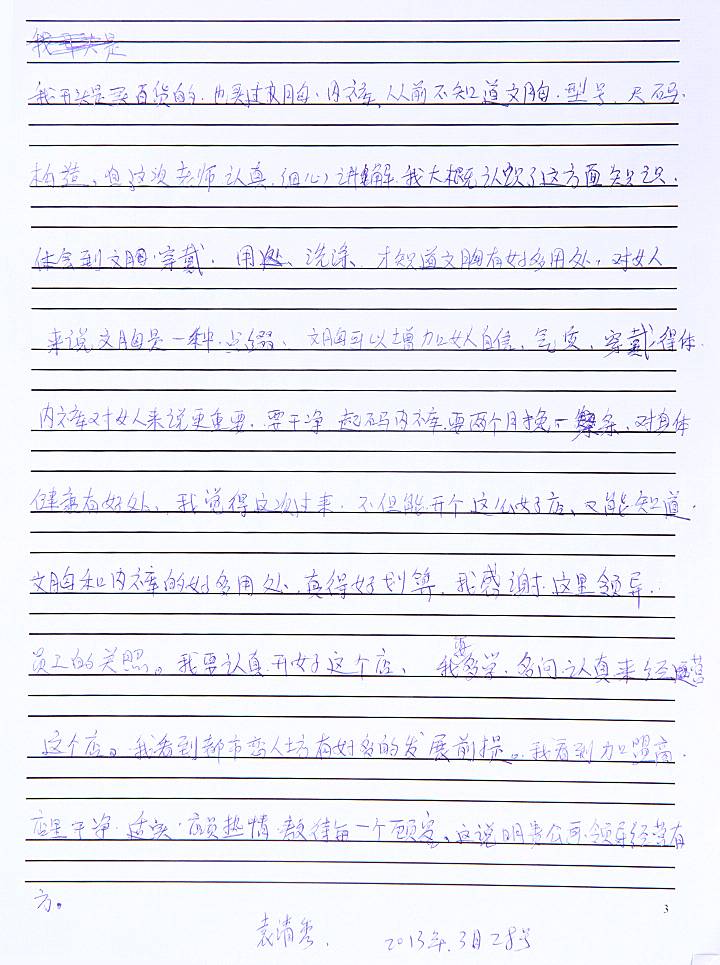 我开头是
我开头是买百货的.也卖过文胸.内裤,从前不知道文胸.型号.尺码.
构造、但这次老师认真.细心讲解.我大概认识了这方面知识.
体会到文胸.穿戴.用处、洗涤、才知道文胸有好多用处,对女人
来说文胸是一种.点缀、文胸可以增加女人自信、气质、穿戴得体.
内裤对女人来说更重要.要干净 起码内裤.要两个月换一条、对身体
健康有好处、我觉得这次过来.不但能开个这么好店、又能知道.
文胸和内裤的好多用处、真得好划算,我感谢.这里领导.
员工的关照。我要认真开好这个店、我要多学.多问.认真来经营
这个店。我看到都市恋人坊有好多的发展前提。我看到加盟商.
店里干净.适实.店员热情.款待每一个顾客、这说明贵公司.领导经营有
方。
3
袁清秀. 2013年.3月28号